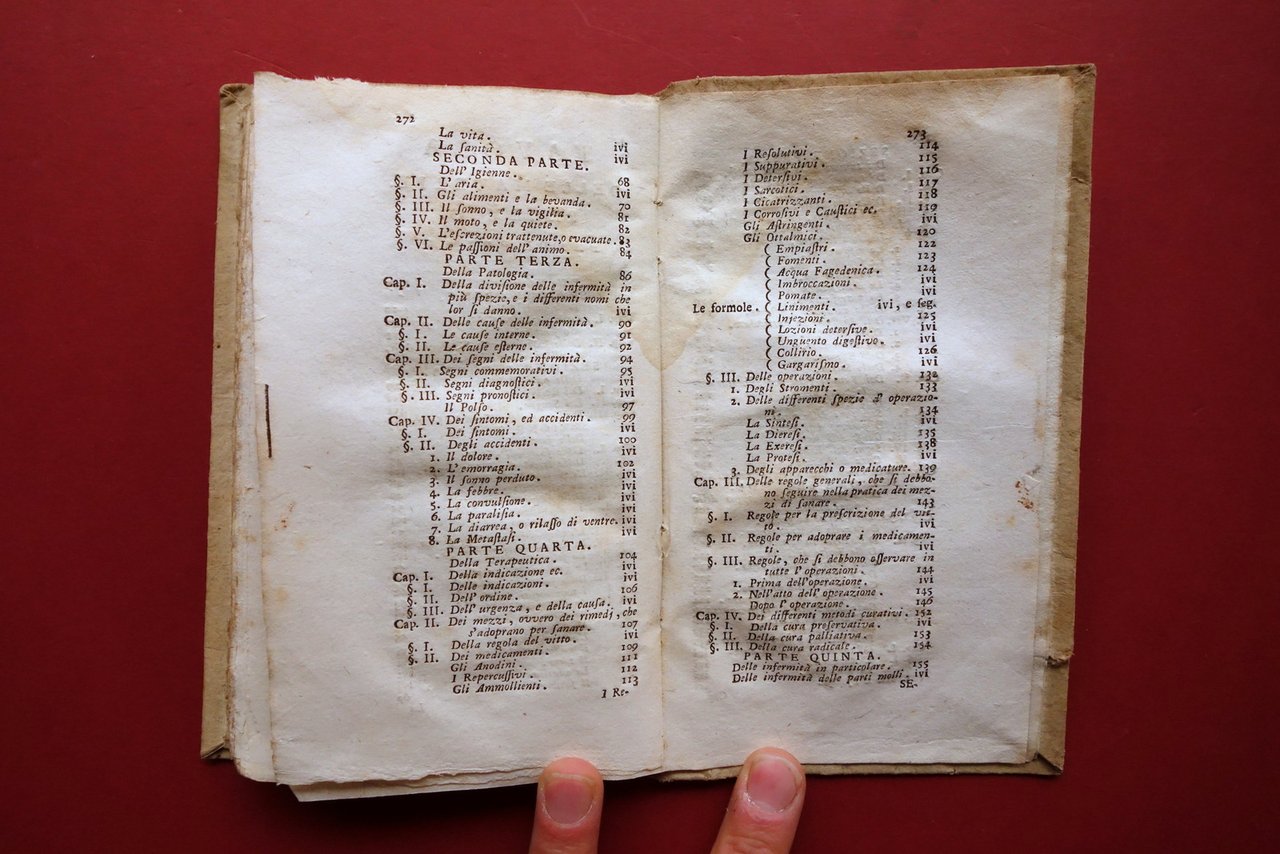 272
La vita.
La ſanità. ivi
SECONDA PARTE. ivi
Dell' Igienne.
§. I. L' aria. 68
§. II. Gli alimenti e la bevanda. ivi
§. III. Il ſonno, e la vigilia. 70
§. IV. Il moto, e la quiete. 81
§. V. L'eſcrezioni trattenute, o evacuate. 82
§. VI. Le paſſioni dell' animo. 83
PARTE TERZA. 84
Della Patologia. 86
Cap. I. Della diviſione delle infermità in
più ſpezie, e i differenti nomi che
lor ſi danno. ivi
Cap. II. Delle cauſe delle infermità. 90
§. I. Le cauſe interne. 91
§. II. Le cauſe eſterne. 92
Cap. III. Dei ſegni delle infermità. 94
§. I. Segni commemorativi. 95
§. II. Segni diagnoſtici. ivi
§. III. Segni pronoſtici. ivi
Il Polſo. 97
Cap. IV. Dei ſintomi, ed accidenti. 99
§. I. Dei ſintomi. ivi
§. II. Degli accidenti. 100
1. Il dolore. ivi
2. L' emorragia. 102
3. Il ſonno perduto. ivi
4. La febbre. ivi
5. La convulſione. ivi
6. La paraliſia. ivi
7. La diarrea, o rilaſſo di ventre. ivi
8. La Metaſtaſi. ivi
PARTE QUARTA.
Della Terapeutica. 104
Cap. I. Della indicazione ec. ivi
§. I. Delle indicazioni. ivi
§. II. Dell' ordine. 106
§. III. Dell' urgenza, e della cauſa. ivi
Cap. II. Dei mezzi, ovvero dei rimedj, che
s'adoprano per ſanare. 107
§. I. Della regola del vitto. ivi
§. II. Dei medicamenti. 109
Gli Anodini. 111
I Repercuſſivi. 112
Gli Ammollienti. 113
I Re-
273
I Reſolutivi. 114
I Suppurativi. 115
I Deterſivi. 116
I Sarcotici. 117
I Cicatrizzanti. 118
I Corroſivi e Cauſtici ec. 119
Gli Aſtringenti. ivi
Gli Ottalmici. 120
Empiaſtri. 122
Fomenti. 123
Acqua Fagedenica. 124
Imbroccazioni. ivi
Pomate. ivi
Le formole. Linimenti. ivi, e ſeg.
Injezioni. 125
Lozioni deterſive. ivi
Unguento digeſtivo. ivi
Collirio. 126
Gargariſmo. ivi
§. III. Delle operazioni. 132
1. Degli Stromenti. 133
2. Delle differenti ſpezie d' operazio-
ni. 134
La Sinteſi. ivi
La Diereſi. 135
La Exereſi. 138
La Proteſi. ivi
3. Degli apparecchi o medicature. 139
Cap. III. Delle regole generali, che ſi debbo-
no ſeguire nella pratica dei mez-
zi di ſanare. 143
§. I. Regole per la preſcrizione del vit-
to. ivi
§. II. Regole per adoprare i medicamen-
ti. ivi
§. III. Regole, che ſi debbono oſſervare in
tutte l' operazioni. 144
1. Prima dell'operazione. ivi
2. Nell'atto dell' operazione. 145
Dopo l' operazione. 146
Cap. IV. Dei differenti metodi curativi. 152
§. I. Della cura preſervativa. ivi
§. II. Della cura palliativa. 153
§. III. Della cura radicale. 154
PARTE QUINTA.
Delle infermità in particolare. 155
Delle infermità delle parti molli. ivi
SE-